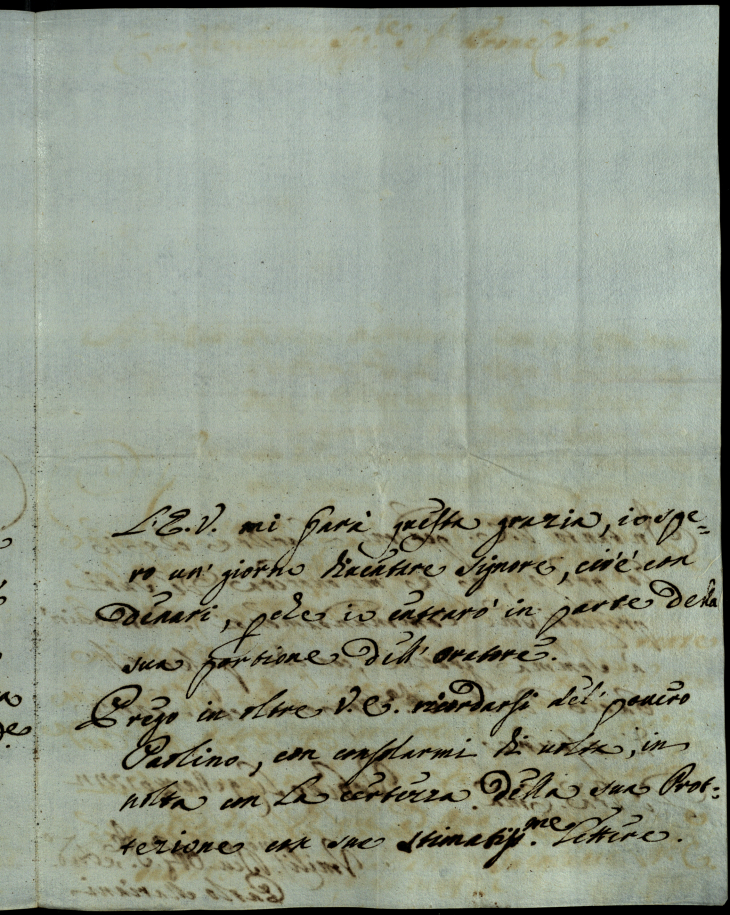 L'E.V. mi farà questa grazia, io spe=
ro un' giorno diventare Signore, cioè con
denari, pche io entrarò in parte della
sua portione dell' oratore.
Prego in oltre V.E. ricordarsi del povero
Paolino, con consolarmi di volta, in
volta con la certezza della sua Prot=
tezione con sue stimatiss.me Lettere.